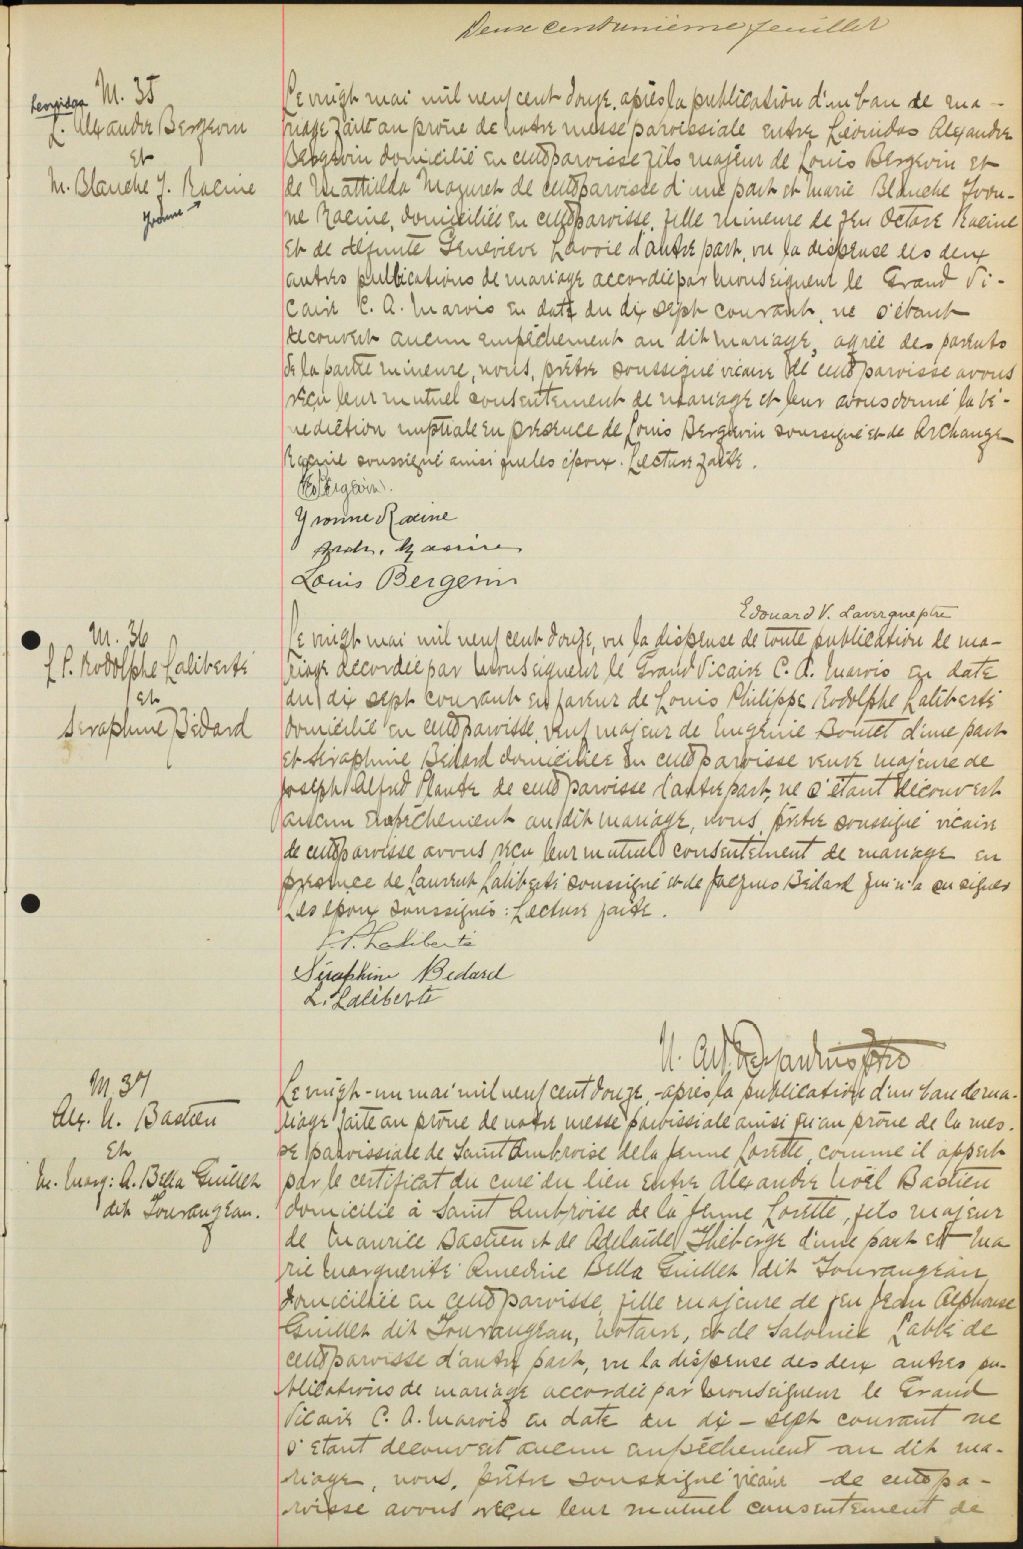 Deux cent unième feuillet
M. 35
Leonidas
L. Alexandre Bergevin
Et
M. Blanche Y. Racine
Yvonne
Le vingt mai mil neuf cent douze, après la publication d'un ban de ma-
riage faite au prône de notre messe paroissiale entre Léonidas Alexandre
Bergevin domicilié en cette paroisse fils majeur de Louis Bergevin et
de Mathilda Mazuret de cette paroisse d'une part et Marie Blanche Yvon-
ne Racine, domiciliée en cette paroisse, fille mineure de feu Octave Racine
Et de défunte Geneviève Lavoie d'autre part, vu la dispense des deux
autres publications de mariage accordée par Monseigneur le Grand Vi-
caire C. A. Marois en date du dix sept courant, ne s'étant
découvert aucun empêchement au dit mariage, agrée des parents
de la partie mineure, nous, prêtre soussigné vicaire de cette paroisse avons
reçu leur mutuel consentement de mariage et leur avons donné la bé-
nédiction nuptiale en présence de Louis Bergevin soussigné et de Archange
Racine soussigné ainsi que les époux. Lecture faite.
Bergevin
Yvonne Racine
Arch. Racine
Louis Bergevin
Edouard V. Lavergne ptre
M. 36
L. P. Rodolphe Laliberté
et
Seraphine Bédard
Le vingt mai mil neuf cent douze, vu la dispense de toute publication de ma-
riage accordée par Monseigneur le Grand Vicaire C. A. Marois en date
du dix sept courant en faveur de Louis Philippe Rodolphe Laliberté
domicilié en cette paroisse, veuf majeur de Eugénie Boutet d'une part
Et Séraphine Bédard domiciliée en cette paroisse veuve majeure de
Joseph Alfred Plante de cette paroisse d'autre part, ne s'étant découvert
aucun empêchement au dit mariage, nous, prêtre soussigné vicaire
de cette paroisse avons reçu leur mutuel consentement de mariage en
présence de Laurent Laliberté soussigné et de Jacques Bédard qui n'a su signer
Les époux soussignés: Lecture faite.
L. P. Laliberté
Séraphine Bedard
L. Laliberté
Ptre
M. 37
Alex. N. Bastien
Et
M. Marg: A. Bella Guillet
dit Tourangeau.
Le vingt-un mai mil neuf cent douze, après la publication d'un ban de ma-
riage faite au prône de notre messe paroissiale ainsi qu'au prône de la mes-
se paroissiale de Saint Ambroise de la Jeune Lorette, comme il appert
par le certificat du curé du lieu entre Alexandre Noël Bastien
domicilié à Saint Ambroise de la Jeune Lorette, fils majeur
de Maurice Bastien et de Adelaïde Théberge d'une part et Ma
rie Marguerite Amedine Bella Guillet dit Tourangeau
domiciliée en cette paroisse, fille majeure de feu Jean Alphonse
Guillet dit Tourangeau, Notaire, et de Salomée Labbé de
cette paroisse d'autre part, vu la dispense des deux autres pu-
blications de mariage accordée par Monseigneur le Grand
Vicaire C. A. Marois en date du dix-sept courant ne
s'étant découvert aucun empêchement au dit ma-
riage, nous, prêtre soussigné vicaire de cette pa-
roisse avons reçu leur mutuel consentement de